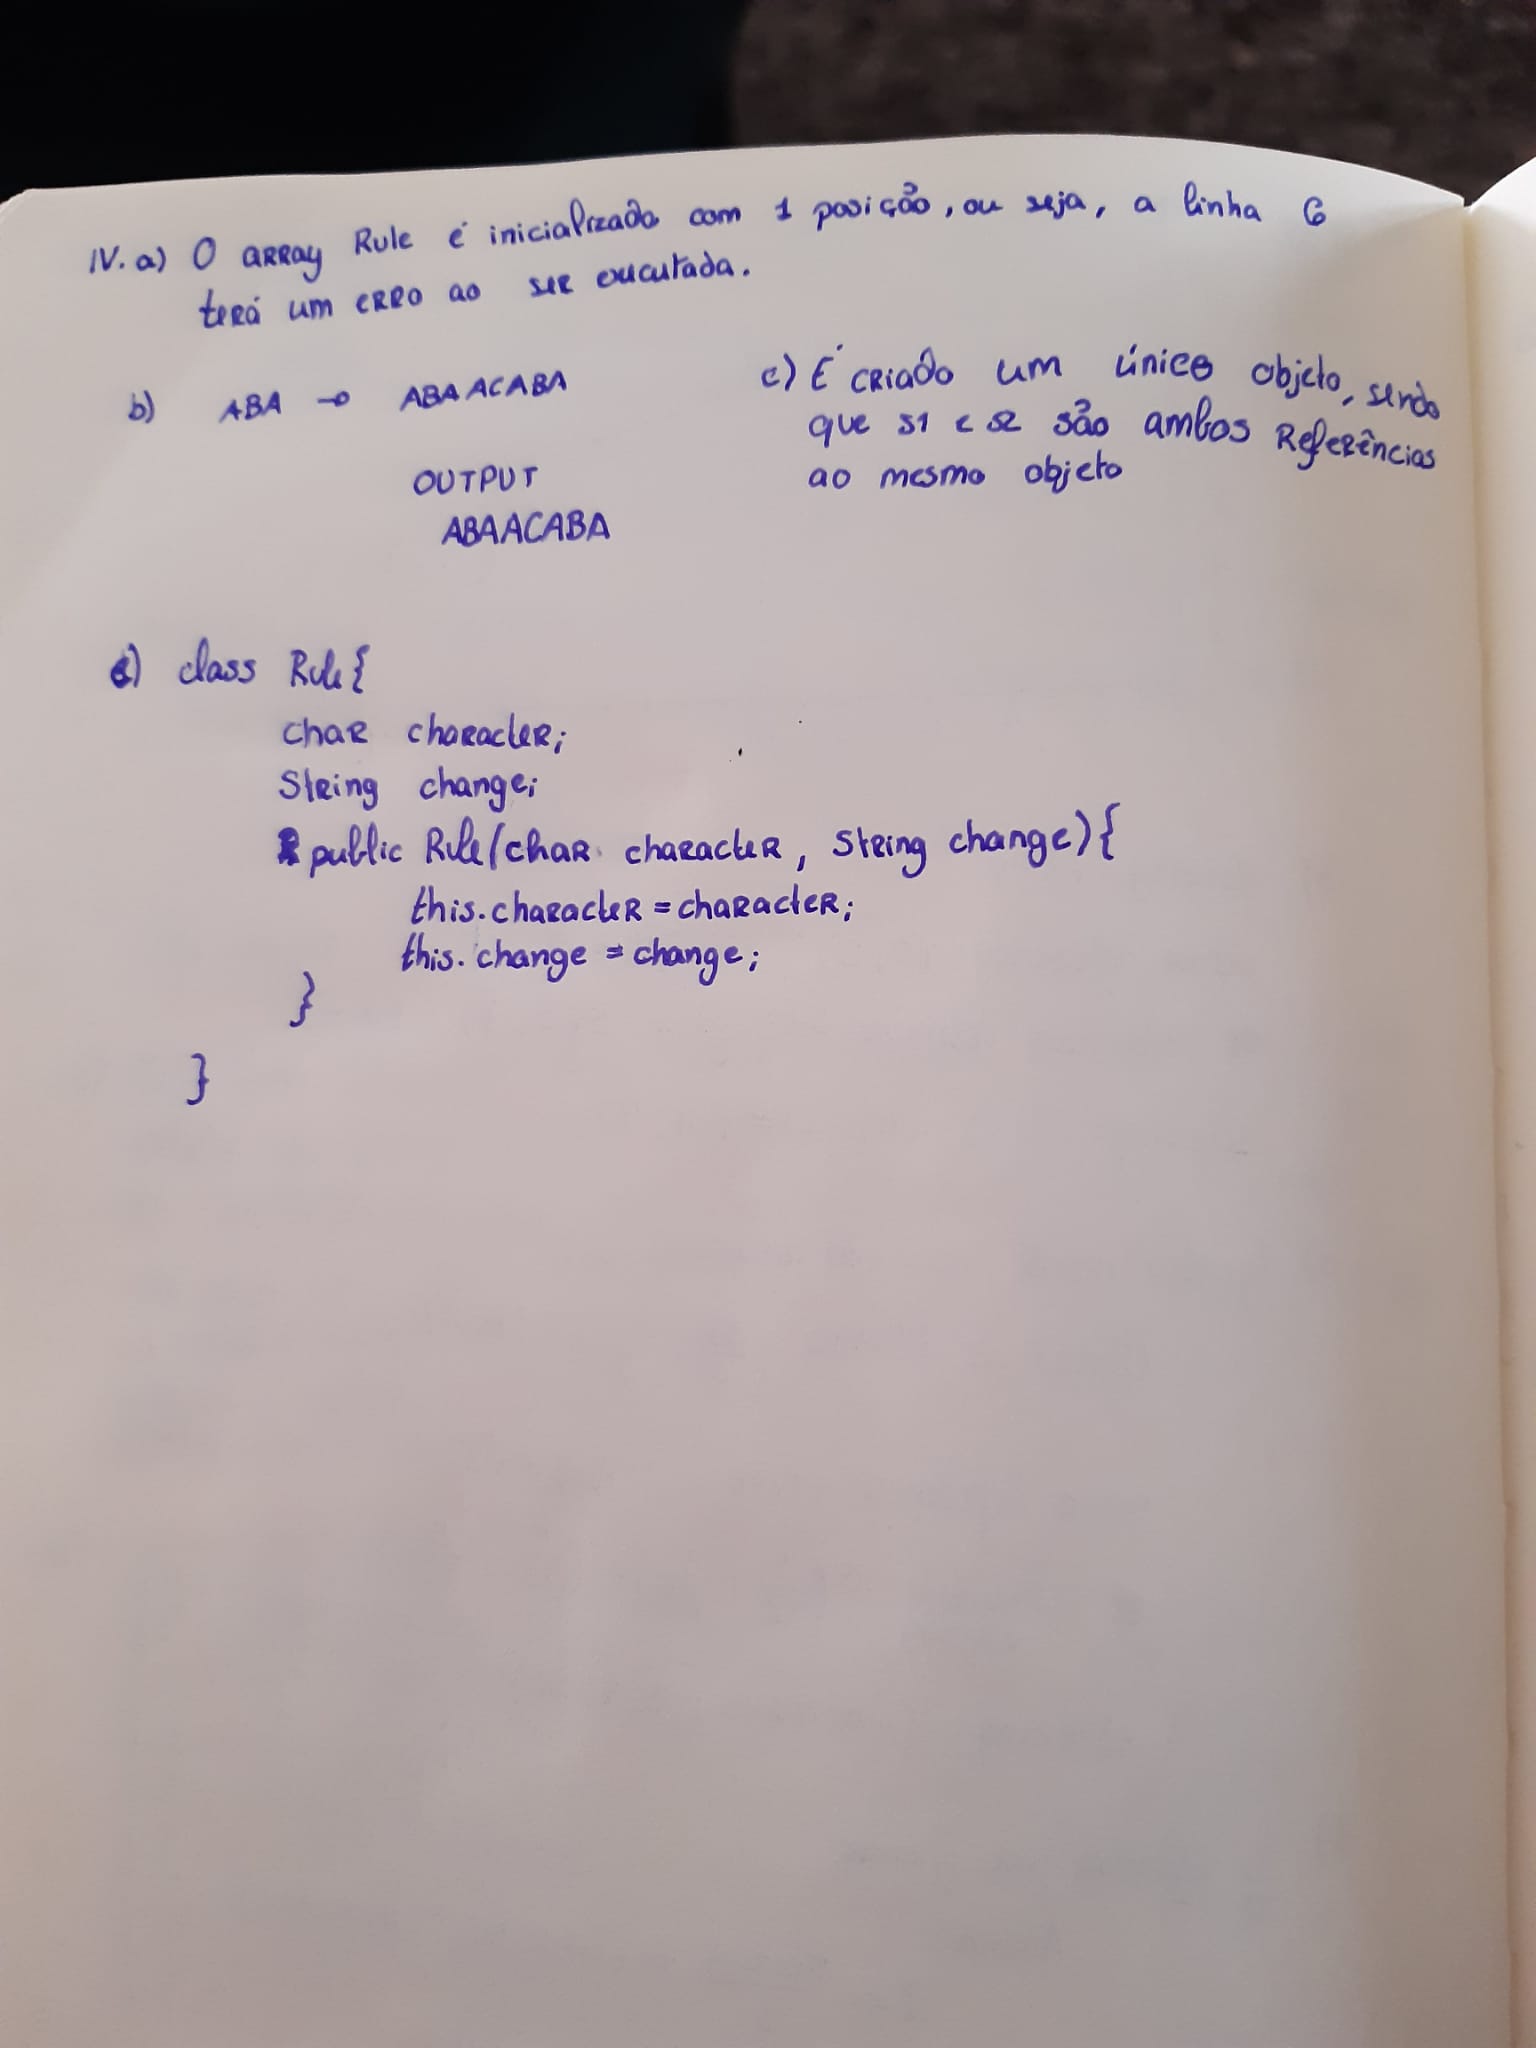 IV. a) O array Rule é inicializado com 1 posição, ou seja, a linha 6
terá um erro ao ser executada.
b) ABA → ABAACABA
OUTPUT
ABAACABA
c) É criado um único objeto, sendo
que s1 e s2 são ambos referências
ao mesmo objeto
d) class Rule{
char character;
String change;
public Rule(char character, String change){
this.character = character;
this.change = change;
}
}